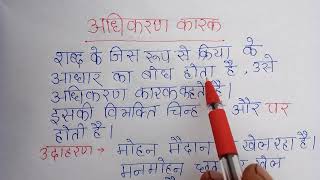 अधिकरण कारक
शब्द के जिस रूप से क्रिया के
आधार का बोध होता है, उसे
अधिकरण कारक कहते हैं।
इसकी विभक्ति चिन्ह और पर
होती है।
उदाहरण → मोहन मैदान खेल रहा है।
मनमोहन खेल